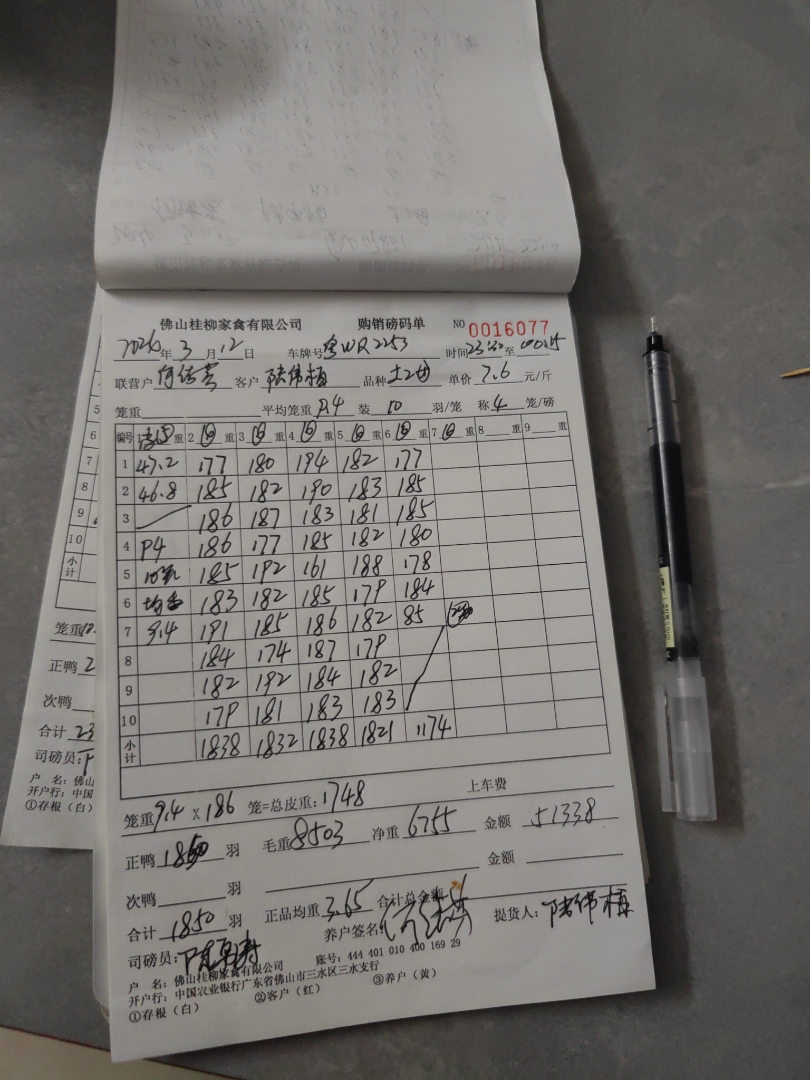 佛山桂柳家禽有限公司 购销磅码单 NO 0016077
2026年 3 月 12 日 车牌号 粤WR2253 时间 23:30 至
联营户 客户 陆伟植 品种 土2母 单价 7.6 元/斤
笼重 平均笼重 9.4 装 10 羽/笼 称 4 笼/磅
编号 重 2 重 3 重 4 重 5 重 6 重 7 重 8 重 9 重
1 47.2 177 180 194 182 177
2 46.8 185 182 190 183 185
3 186 187 183 181 185
4 94 186 177 185 182 180
5 185 192 161 188 178
6 183 182 185 179 184
7 9.4 191 185 186 182 85
8 184 174 187 179
9 182 192 184 182
10 179 181 183 183
小计 1838 1832 1838 1821 1174
笼重 9.4 X 186 笼=总皮重: 1748 上车费
正鸭 1850 羽 毛重 8503 净重 6755 金额 51338
次鸭 羽 金额
合计 1850 羽 正品均重 3.65 合计总金额
司磅员: 养户签名: 提货人: 陆伟植
户 名: 佛山桂柳家禽有限公司 账号: 444 401 010 400 169 29
开户行: 中国农业银行广东省佛山市三水区三水支行
①存根（白） ②客户（红） ③养户（黄）
5
6
7
8
9
10
小计
笼重
正鸭 2
次鸭
合计 23
司磅员:
户 名: 佛山
开户行: 中国
①存根（白）